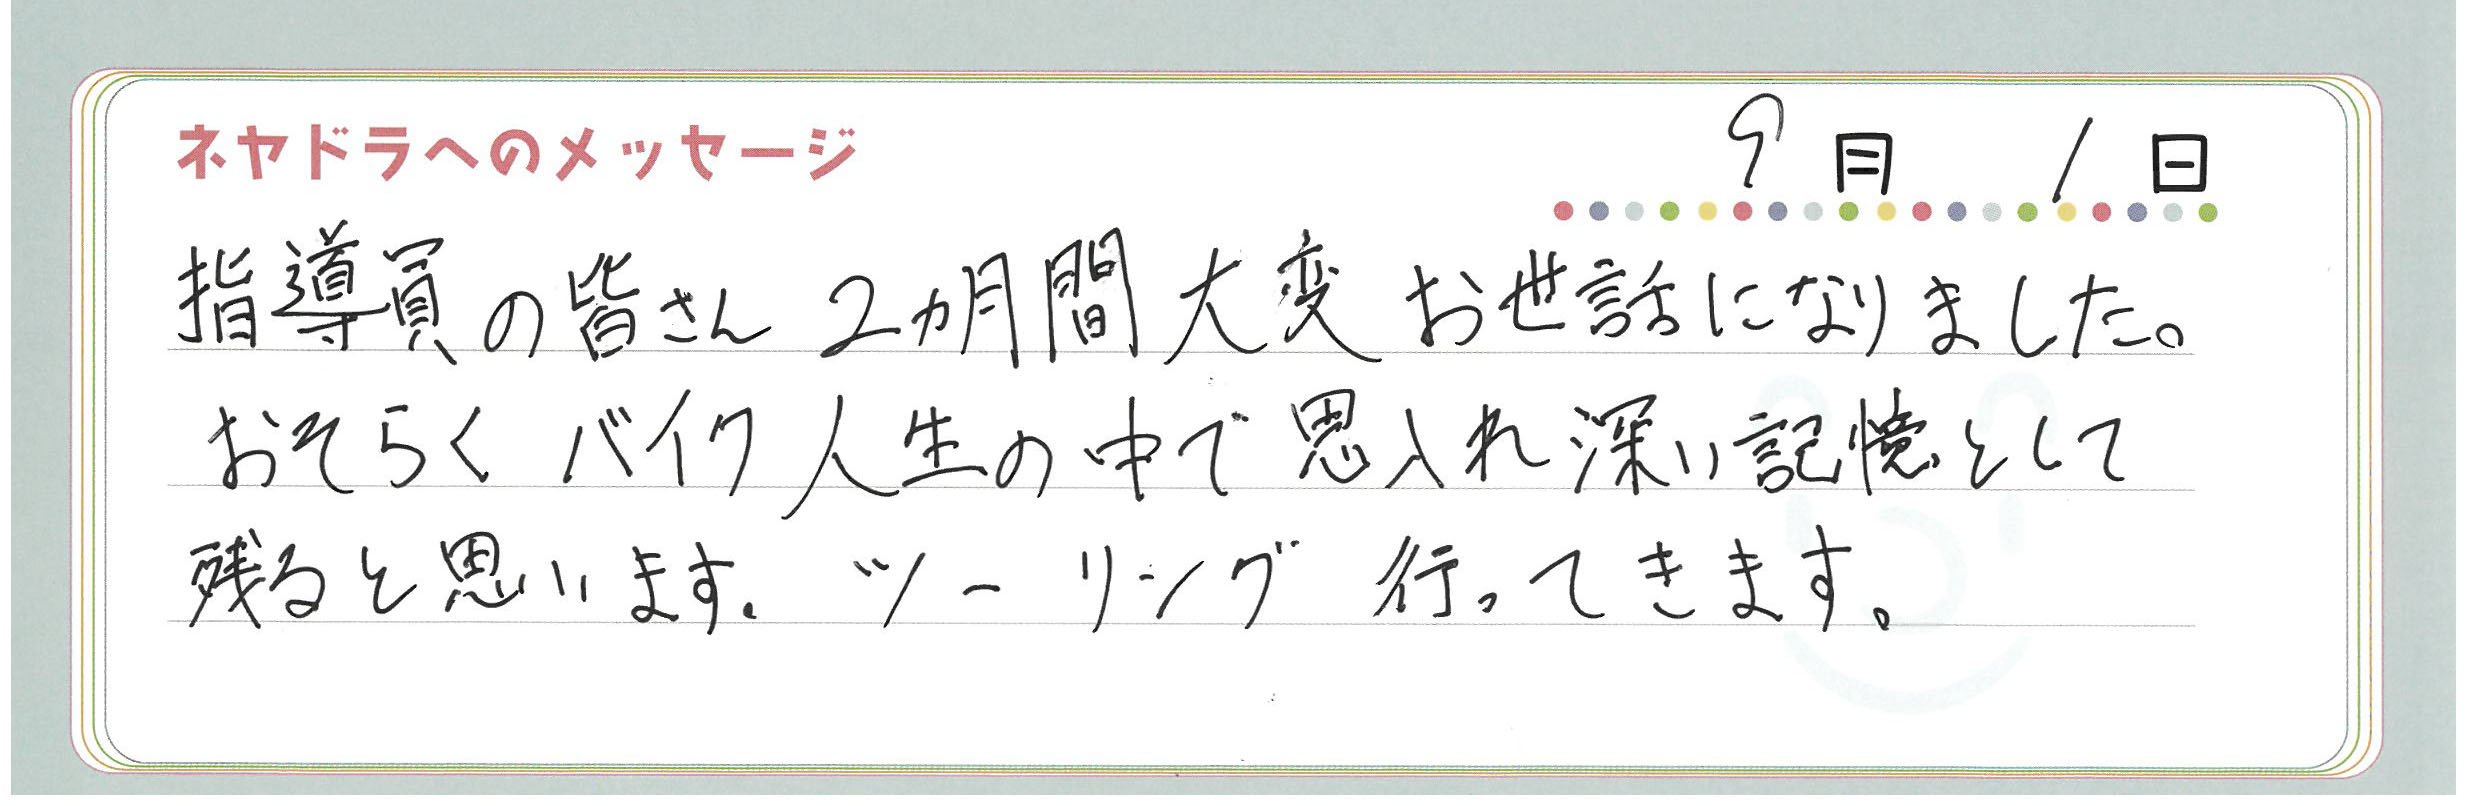 ネヤドラへのメッセージ 9月 1日
指導員の皆さん 2ヵ月間 大変 お世話になりました。
おそらく バイク人生の中で 思入れ深い記憶として
残ると思います。 ツーリング 行ってきます。